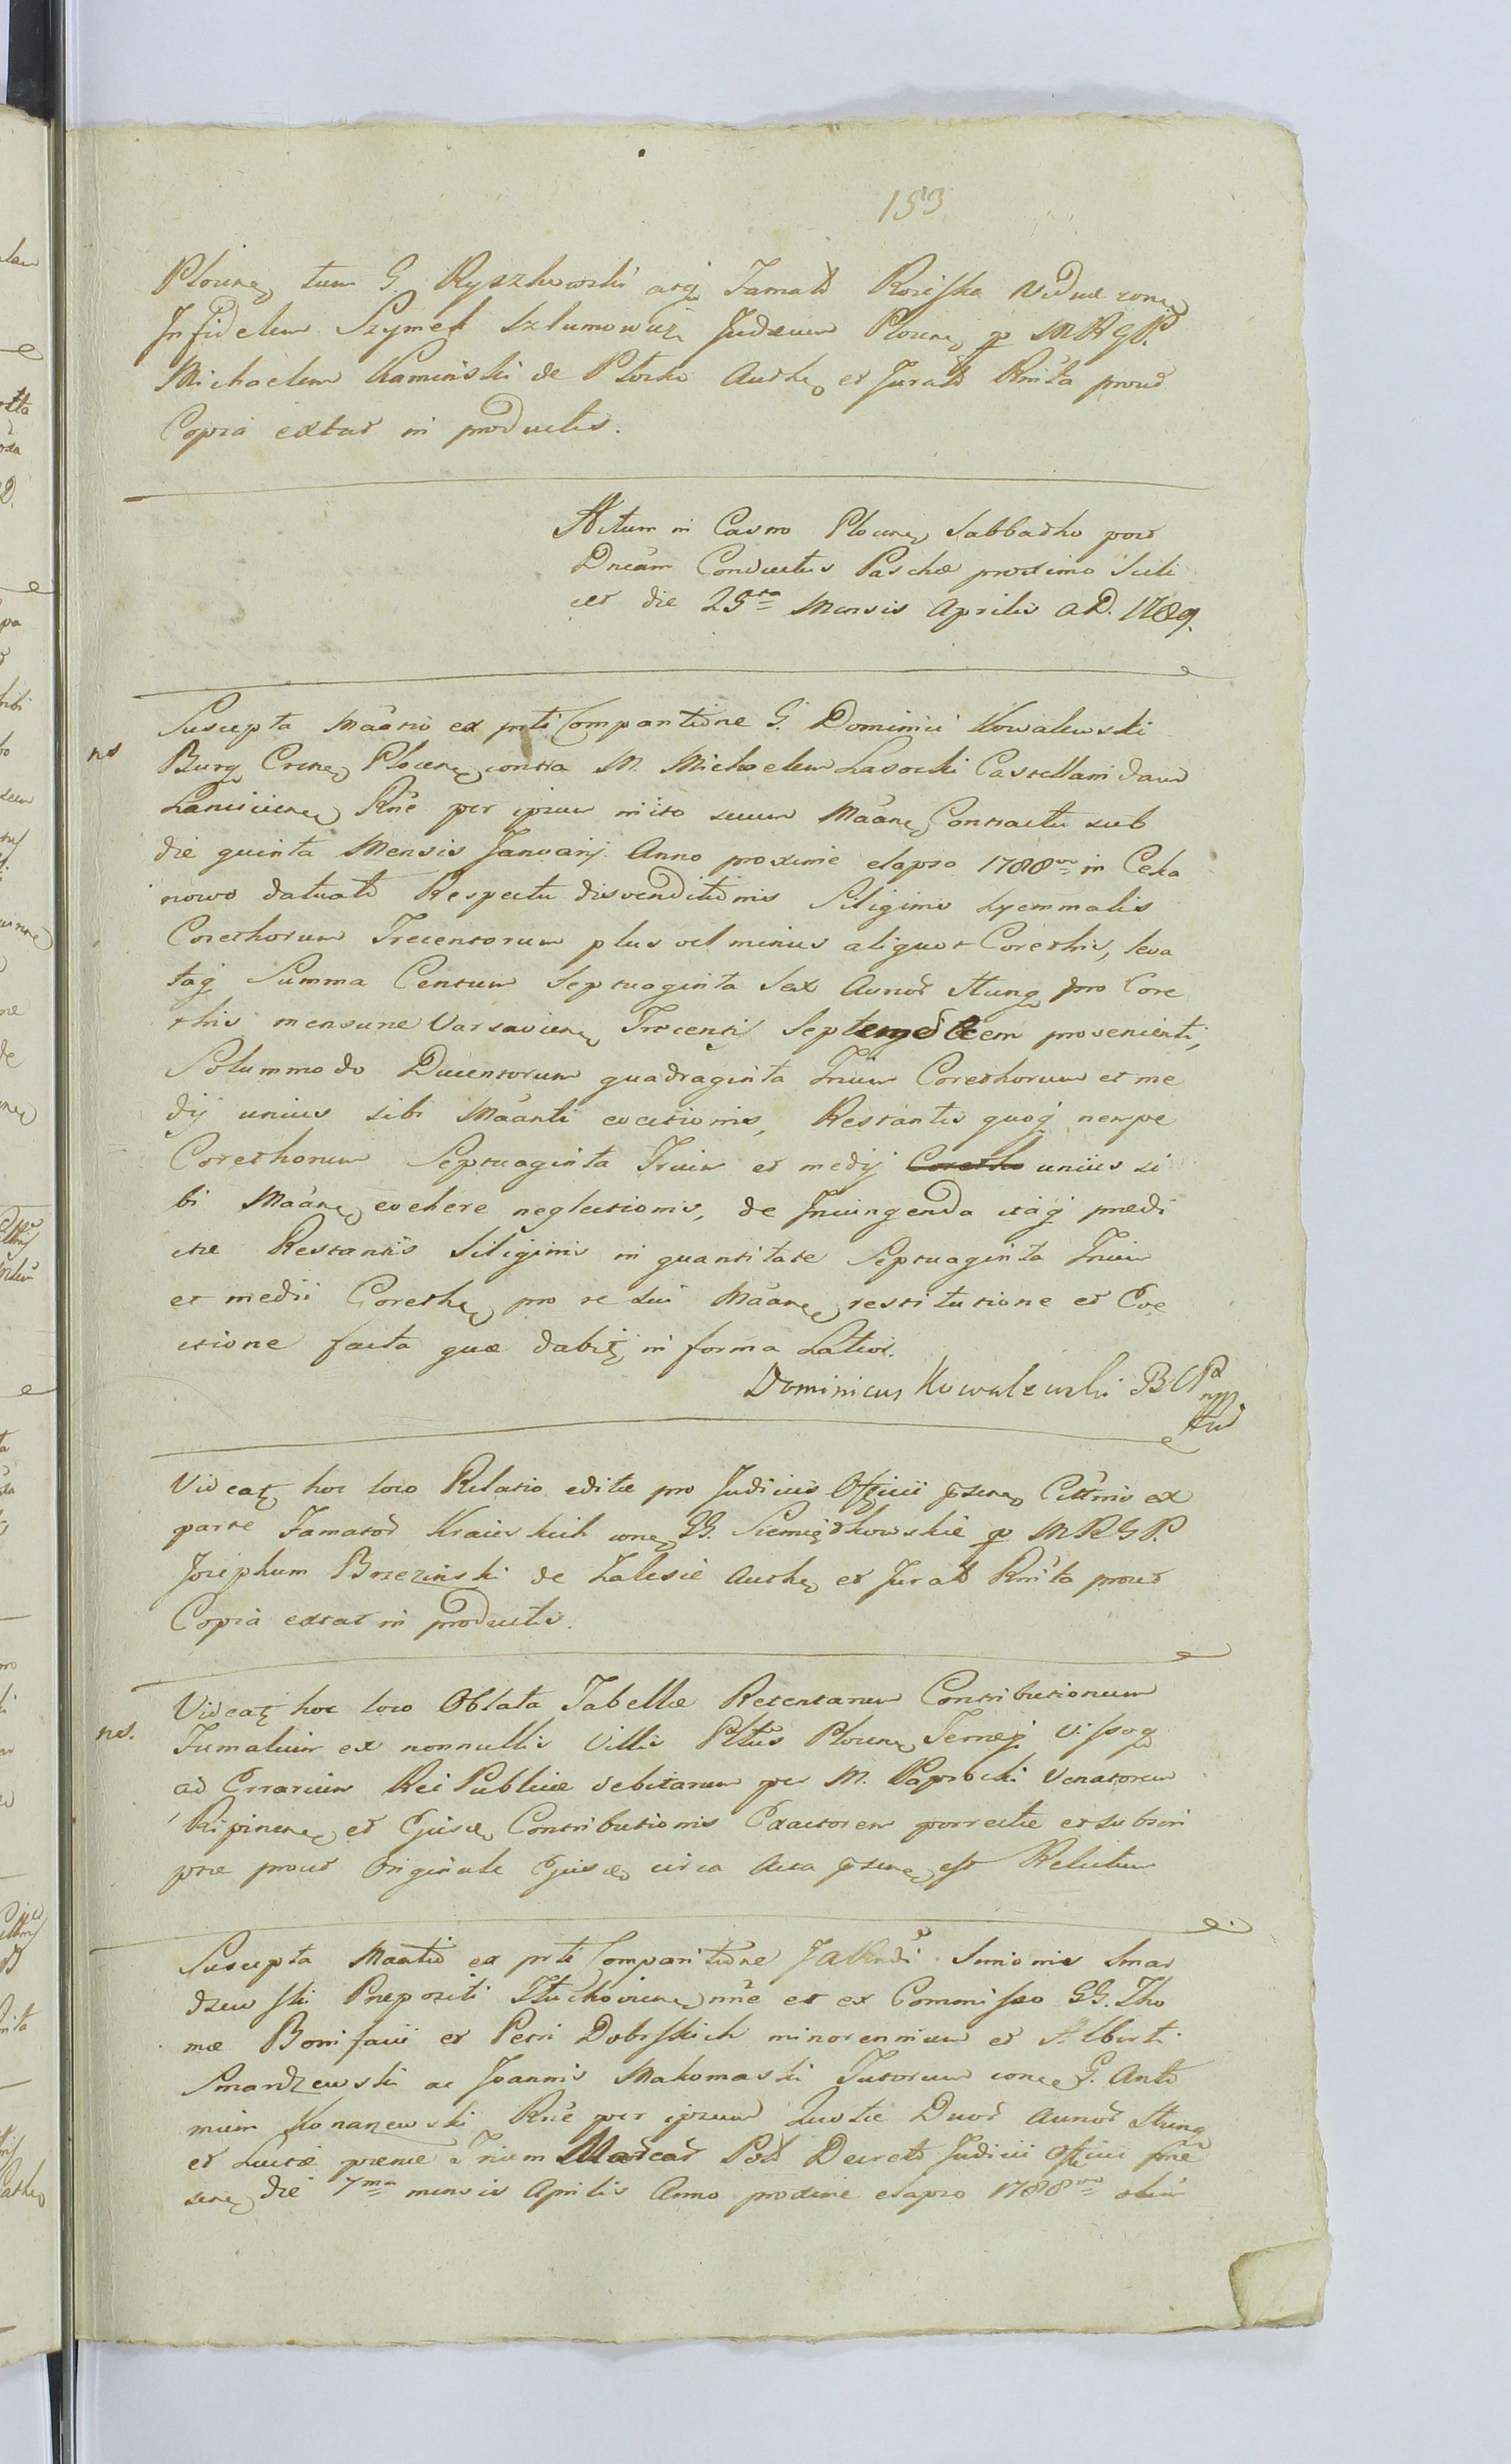 153
Plocnẹ tum G. Ryszkowski atq Famatt Roziſka viduæ conẹ
Infidelem Szymek Szlumowicz Judæum Plocnẹ p MRGP.
Michaelem Kaminski de Płocko Authẹ et Juratt Rnita prout
Copia extat in productis.
Actum in Castro Plocnẹ Sabbatho post
Dncam Conductus Paschæ proximo Scili
cet die 25ta Mensis Aprilis A.D. 1789.
Suscepta Maario ex prti Comparitione G. Dominici Kowalewski
ns
Burg Crcnẹ Plocnẹ contra M. Michaelem Lasocki Castellanidam
Lancicienẹ Rne per ipsum inito secum Maanẹ Contractu sub
die quinta Mensis Januarij Anno proxime elapso 1788vo in Ceka
nowo datuato Respectu disvenditionis Siliginis hyemmalis
Corethorum Trecentorum plus vel minus aliquot Corethis, leva
taq Summa Centum Septuaginta Sex Aunor Hung pro Core
this mensuræ Varsavienẹ Trecentis Septemdecem provenienti,
Solummodo Ducentorum quadraginta Trium Corethorum et me
dij unius sibi Maanti evectionis, Restantis quoq nempe
Corethorum Septuaginta Trium et medij Coretho unius si
bi Maanẹ evehere neglectionis, de Iniungenda itaq prædi
ctæ Restantis Siliginis in quantitate Septuaginta Trium
et medii Corethẹ pro se sui Maanẹ restitutione et Eve
ctione facta quæ dabitṛ in forma Latior.
Dominicus Kowalewski BCP
mpp
Videatṛ hoc loco Relatio editæ pro Judiciis Officii psenẹ Cittnis ex
parte Famator Kraiewskich conẹ GG. Siemiątkowskie p MRGP.
Josephum Brzezinski de Zalesie Authẹ et Juratt Rnita prout
Copia extat in productis.
Videatṛ hoc loco Oblata Tabellæ Retentarum Contributionum
ns.
Fumalium ex nonnullis Villis Pttus Plocnẹ Terræq Viſsog
ad Errarium Rei Publicæ debitarum per M. Paprocki Venatorem
Ripinenẹ et Ejusdẹ Contributionis Exactorem porrectæ et subscri
ptæ prout Originale Ejusdẹ circa Acta psenẹ est Relictum
Suscepta Maatio ex prti Comparitione JAVndi Simonis Smar
dzewſki Præpositi Ttuchowienẹ nne et ex Commiſso GG. Tho
mæ Bonifacii et Petri Dobrſkich minorennium et Alberti
Smardzewski ac Joannis Makomaski Tutorum conẹ G. Anto
nium Konarzewski Rne per ipsum Luitæ Duor Aunor Hung
et Luitæ pænæ Trium Marcar Polt Decreto Judicii Officii præ
senẹ die 7ma mensis Aprilis Anno proxime elapso 1788vo